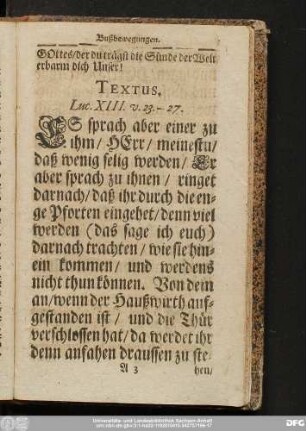 Bußbewegungen.
GOttes/der du trägst die Sünde der Welt
erbarm dich Unser!
TEXTUS.
Luc. XIII. v. 23.-27.
ES sprach aber einer zu
ihm/ HErr/ meinestu/
daß wenig selig werden/ Er
aber sprach zu ihnen/ ringet
darnach/ daß ihr durch die en-
ge Pforten eingehet/denn viel
werden (das sage ich euch)
darnach trachten/ wie sie hin-
ein kommen/ und werdens
nicht thun können. Von dem
an/wenn der Haußwirth auf-
gestanden ist/ und die Thür
verschlossen hat/da werdet ihr
denn anfahen draussen zu ste-
A 3
hen/
Universitäts- und Landesbibliothek Sachsen-Anhalt
DFG